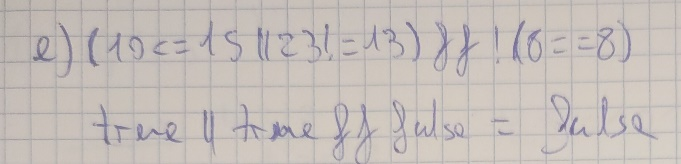 e) (10<=15 || 23!=13) && !(8==8)
true || true && false = false